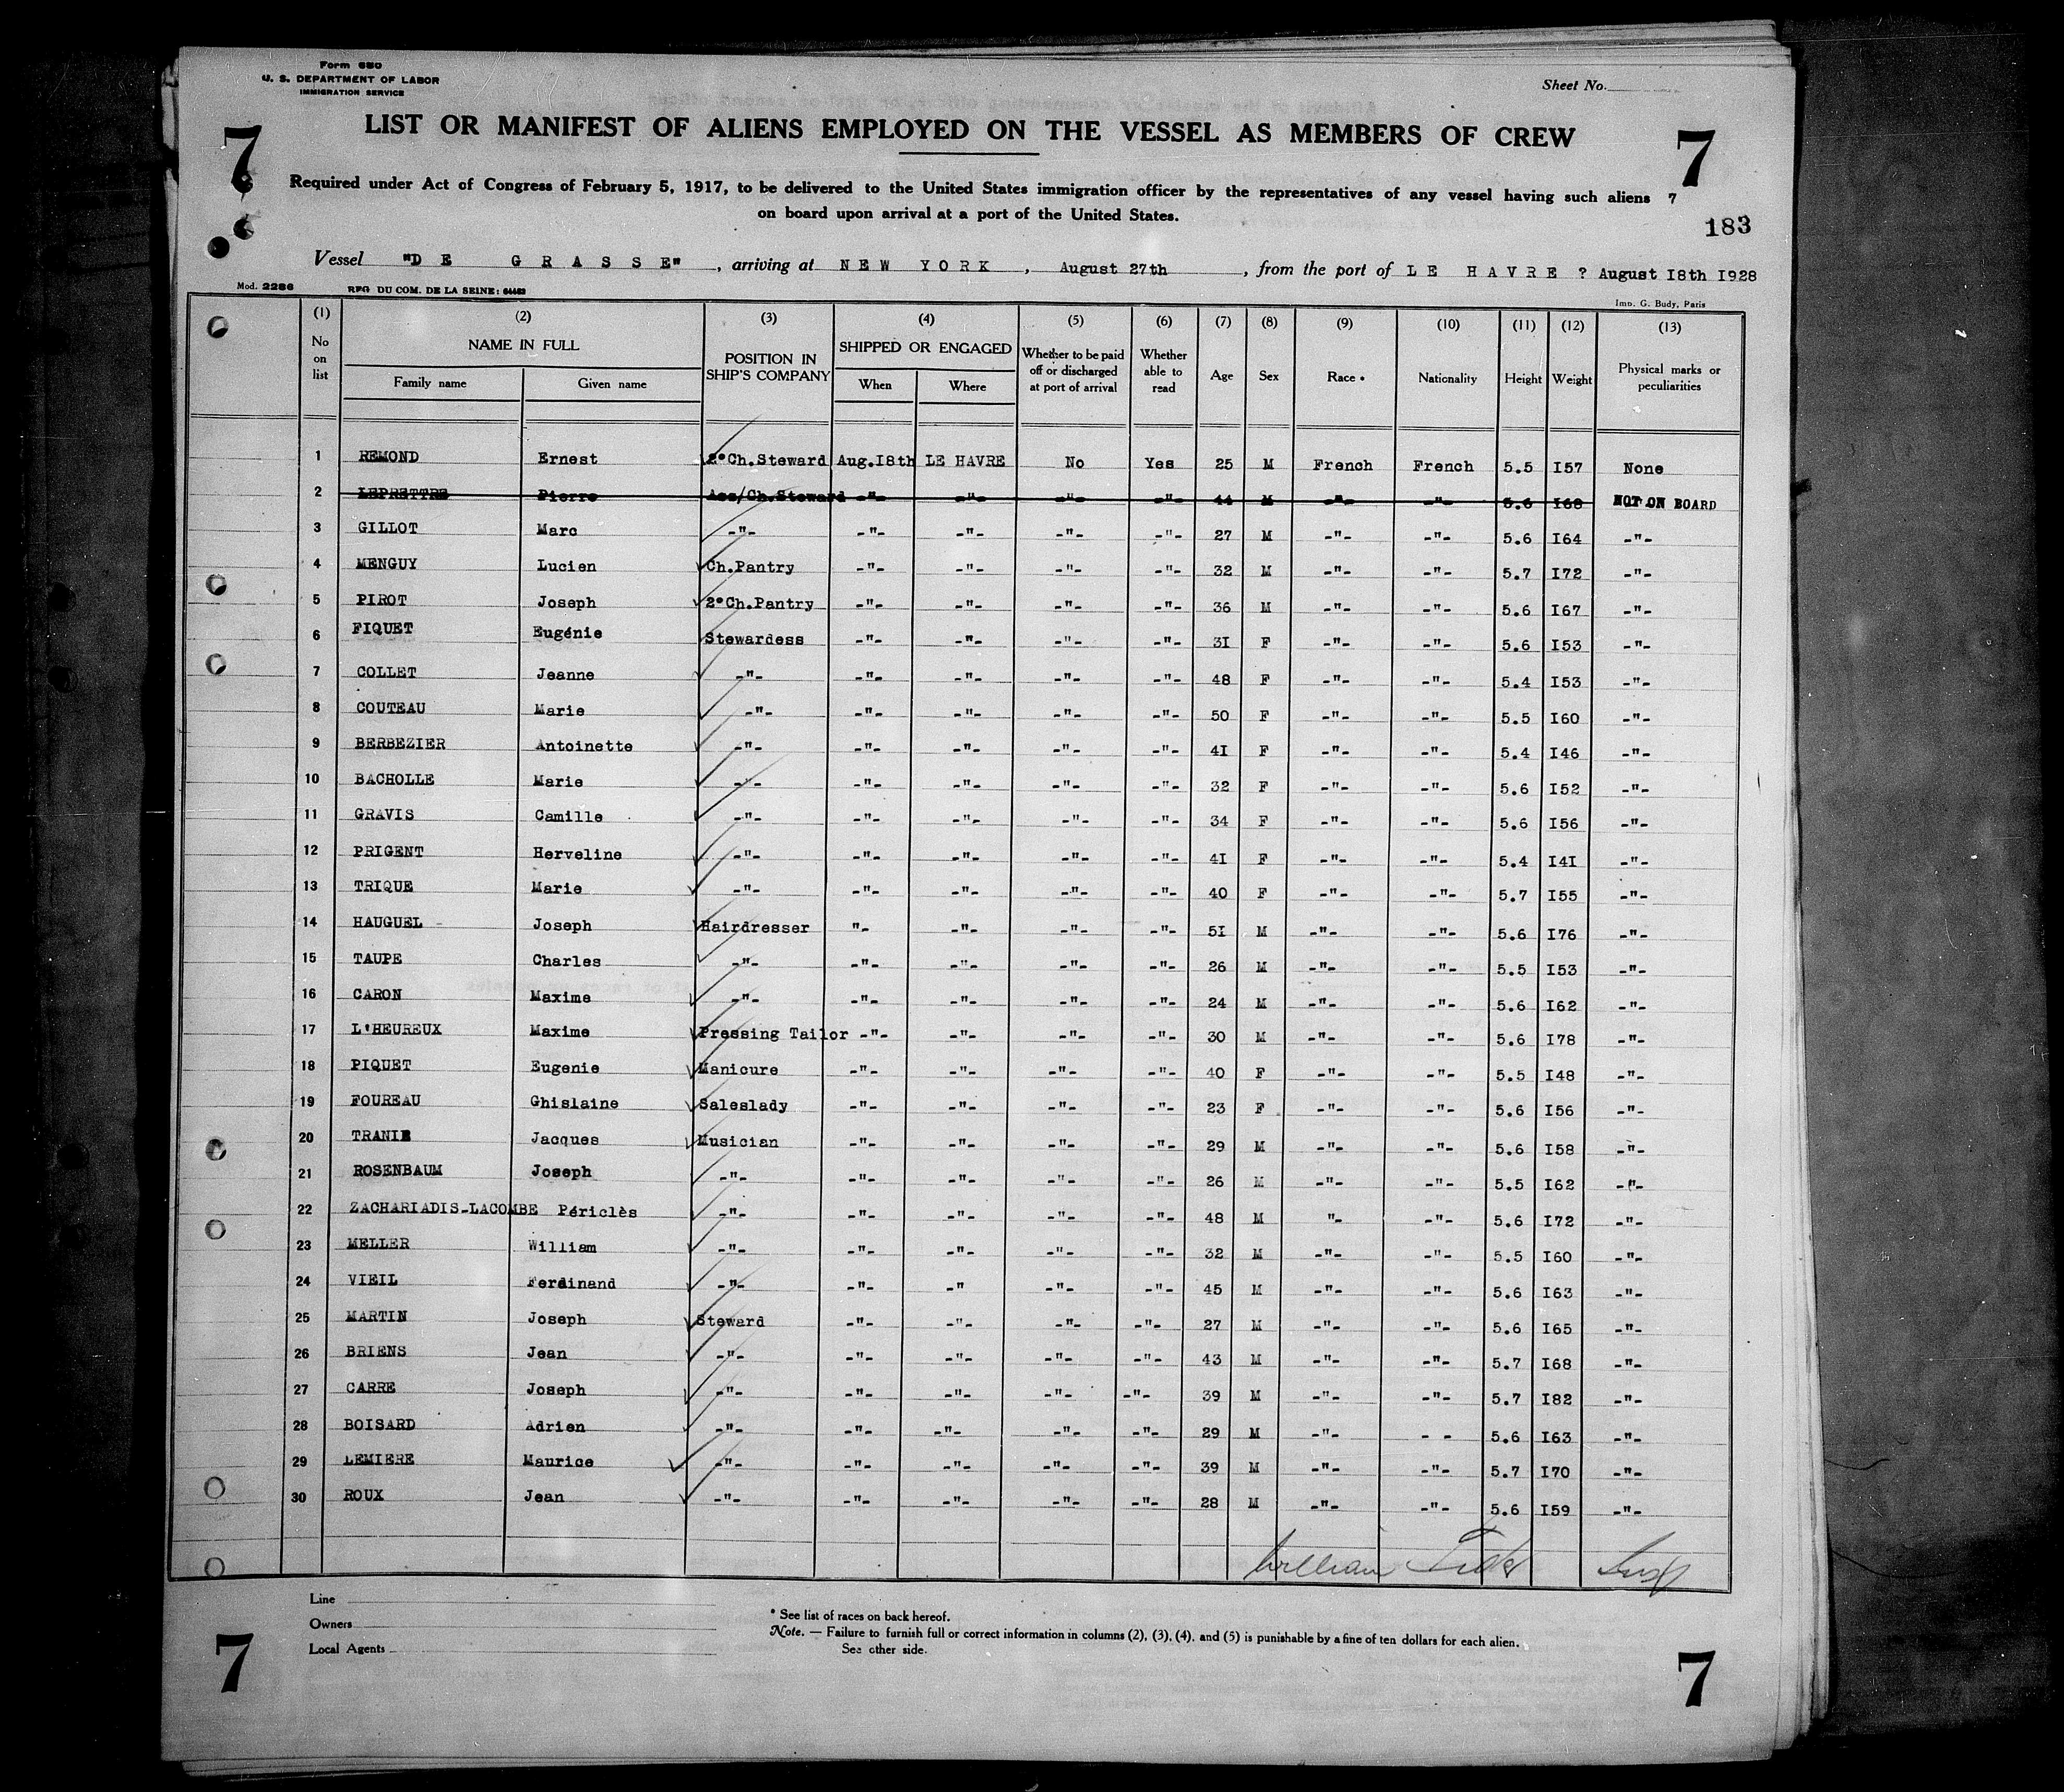 Form 680
U. S. DEPARTMENT OF LABOR
IMMIGRATION SERVICE
Sheet No.
7 7
LIST OR MANIFEST OF ALIENS EMPLOYED ON THE VESSEL AS MEMBERS OF CREW
Required under Act of Congress of February 5, 1917, to be delivered to the United States immigration officer by the representatives of any vessel having such aliens 7
on board upon arrival at a port of the United States.
183
Vessel "DE GRASSE", arriving at NEW YORK, August 27th, from the port of LE HAVRE ? August I8th I928
Mod. 2286 REG DU COM. DE LA SEINE: Imp. G. Budy, Paris
(1) (2) (3) (4) (5) (6) (7) (8) (9) (10) (11) (12) (13)
No on list NAME IN FULL POSITION IN SHIP'S COMPANY SHIPPED OR ENGAGED Whether to be paid off or discharged at port of arrival Whether able to read Age Sex Race • Nationality Height Weight Physical marks or peculiarities
Family name Given name When Where
1 REMOND Ernest 2°Ch.Steward Aug.I8th LE HAVRE No Yes 25 M French French 5.5 I57 None
2 LEPRETTRE Pierre Ass/Ch.Steward -"- -"- -"- -"- 44 M -"- -"- 5.6 I68 NOT ON BOARD
3 GILLOT Marc -"- -"- -"- -"- -"- 27 M -"- -"- 5.6 I64 -"-
4 MENGUY Lucien Ch.Pantry -"- -"- -"- -"- 32 M -"- -"- 5.7 I72 -"-
5 PIROT Joseph 2°Ch.Pantry -"- -"- -"- -"- 36 M -"- -"- 5.6 I67 -"-
6 FIQUET Eugénie Stewardess -"- -"- -"- -"- 3I F -"- -"- 5.6 I53 -"-
7 COLLET Jeanne -"- -"- -"- -"- -"- 48 F -"- -"- 5.4 I53 -"-
8 COUTEAU Marie -"- -"- -"- -"- -"- 50 F -"- -"- 5.5 I60 -"-
9 BERBEZIER Antoinette -"- -"- -"- -"- -"- 4I F -"- -"- 5.4 I46 -"-
10 BACHOLLE Marie -"- -"- -"- -"- -"- 32 F -"- -"- 5.6 I52 -"-
11 GRAVIS Camille -"- -"- -"- -"- -"- 34 F -"- -"- 5.6 I56 -"-
12 PRIGENT Herveline -"- -"- -"- -"- -"- 4I F -"- -"- 5.4 I4I -"-
13 TRIQUE Marie -"- -"- -"- -"- -"- 40 F -"- -"- 5.7 I55 -"-
14 HAUGUEL Joseph Hairdresser "- -"- -"- -"- 5I M -"- -"- 5.6 I76 -"-
15 TAUPE Charles -"- -"- -"- -"- -"- 26 M -"- -"- 5.5 I53 -"-
16 CARON Maxime -"- -"- -"- -"- -"- 24 M -"- -"- 5.6 I62 -"-
17 L'HEUREUX Maxime Pressing Tailor -"- -"- -"- -"- 30 M -"- -"- 5.6 I78 -"-
18 PIQUET Eugenie Manicure -"- -"- -"- -"- 40 F -"- -"- 5.5 I48 -"-
19 FOUREAU Ghislaine Saleslady -"- -"- -"- -"- 23 F -"- -"- 5.6 I56 -"-
20 TRANIE Jacques Musician -"- -"- -"- -"- 29 M -"- -"- 5.6 I58 -"-
21 ROSENBAUM Joseph -"- -"- -"- -"- -"- 26 M -"- -"- 5.5 I62 -"-
22 ZACHARIADIS-LACOMBE Périclès -"- -"- -"- -"- -"- 48 M "- -"- 5.6 I72 -"-
23 MELLER William -"- -"- -"- -"- -"- 32 M -"- -"- 5.5 I60 -"-
24 VIEIL Ferdinand -"- -"- -" -"- -"- 45 M -"- -"- 5.6 I63 -"-
25 MARTIN Joseph Steward -"- -"- -"- -"- 27 M -"- -"- 5.6 I65 -"-
26 BRIENS Jean -"- -"- -"- -"- -"- 43 M -"- -"- 5.7 I68 -"-
27 CARRE Joseph -"- -"- -"- -"- -"- 39 M -"- -"- 5.7 I82 -"-
28 BOISARD Adrien -"- -"- -"- -"- -"- 29 M -"- - - 5.6 I63 -"-
29 LEMIERE Maurice -"- -"- -"- -"- -"- 39 M -"- -"- 5.7 I70 -"-
30 ROUX Jean -"- -"- -"- -"- -"- 28 M -"- -"- 5.6 I59 -"-
William
Line
Owners
Local Agents
* See list of races on back hereof.
Note. — Failure to furnish full or correct information in columns (2), (3), (4), and (5) is punishable by a fine of ten dollars for each alien.
See other side.
7 7